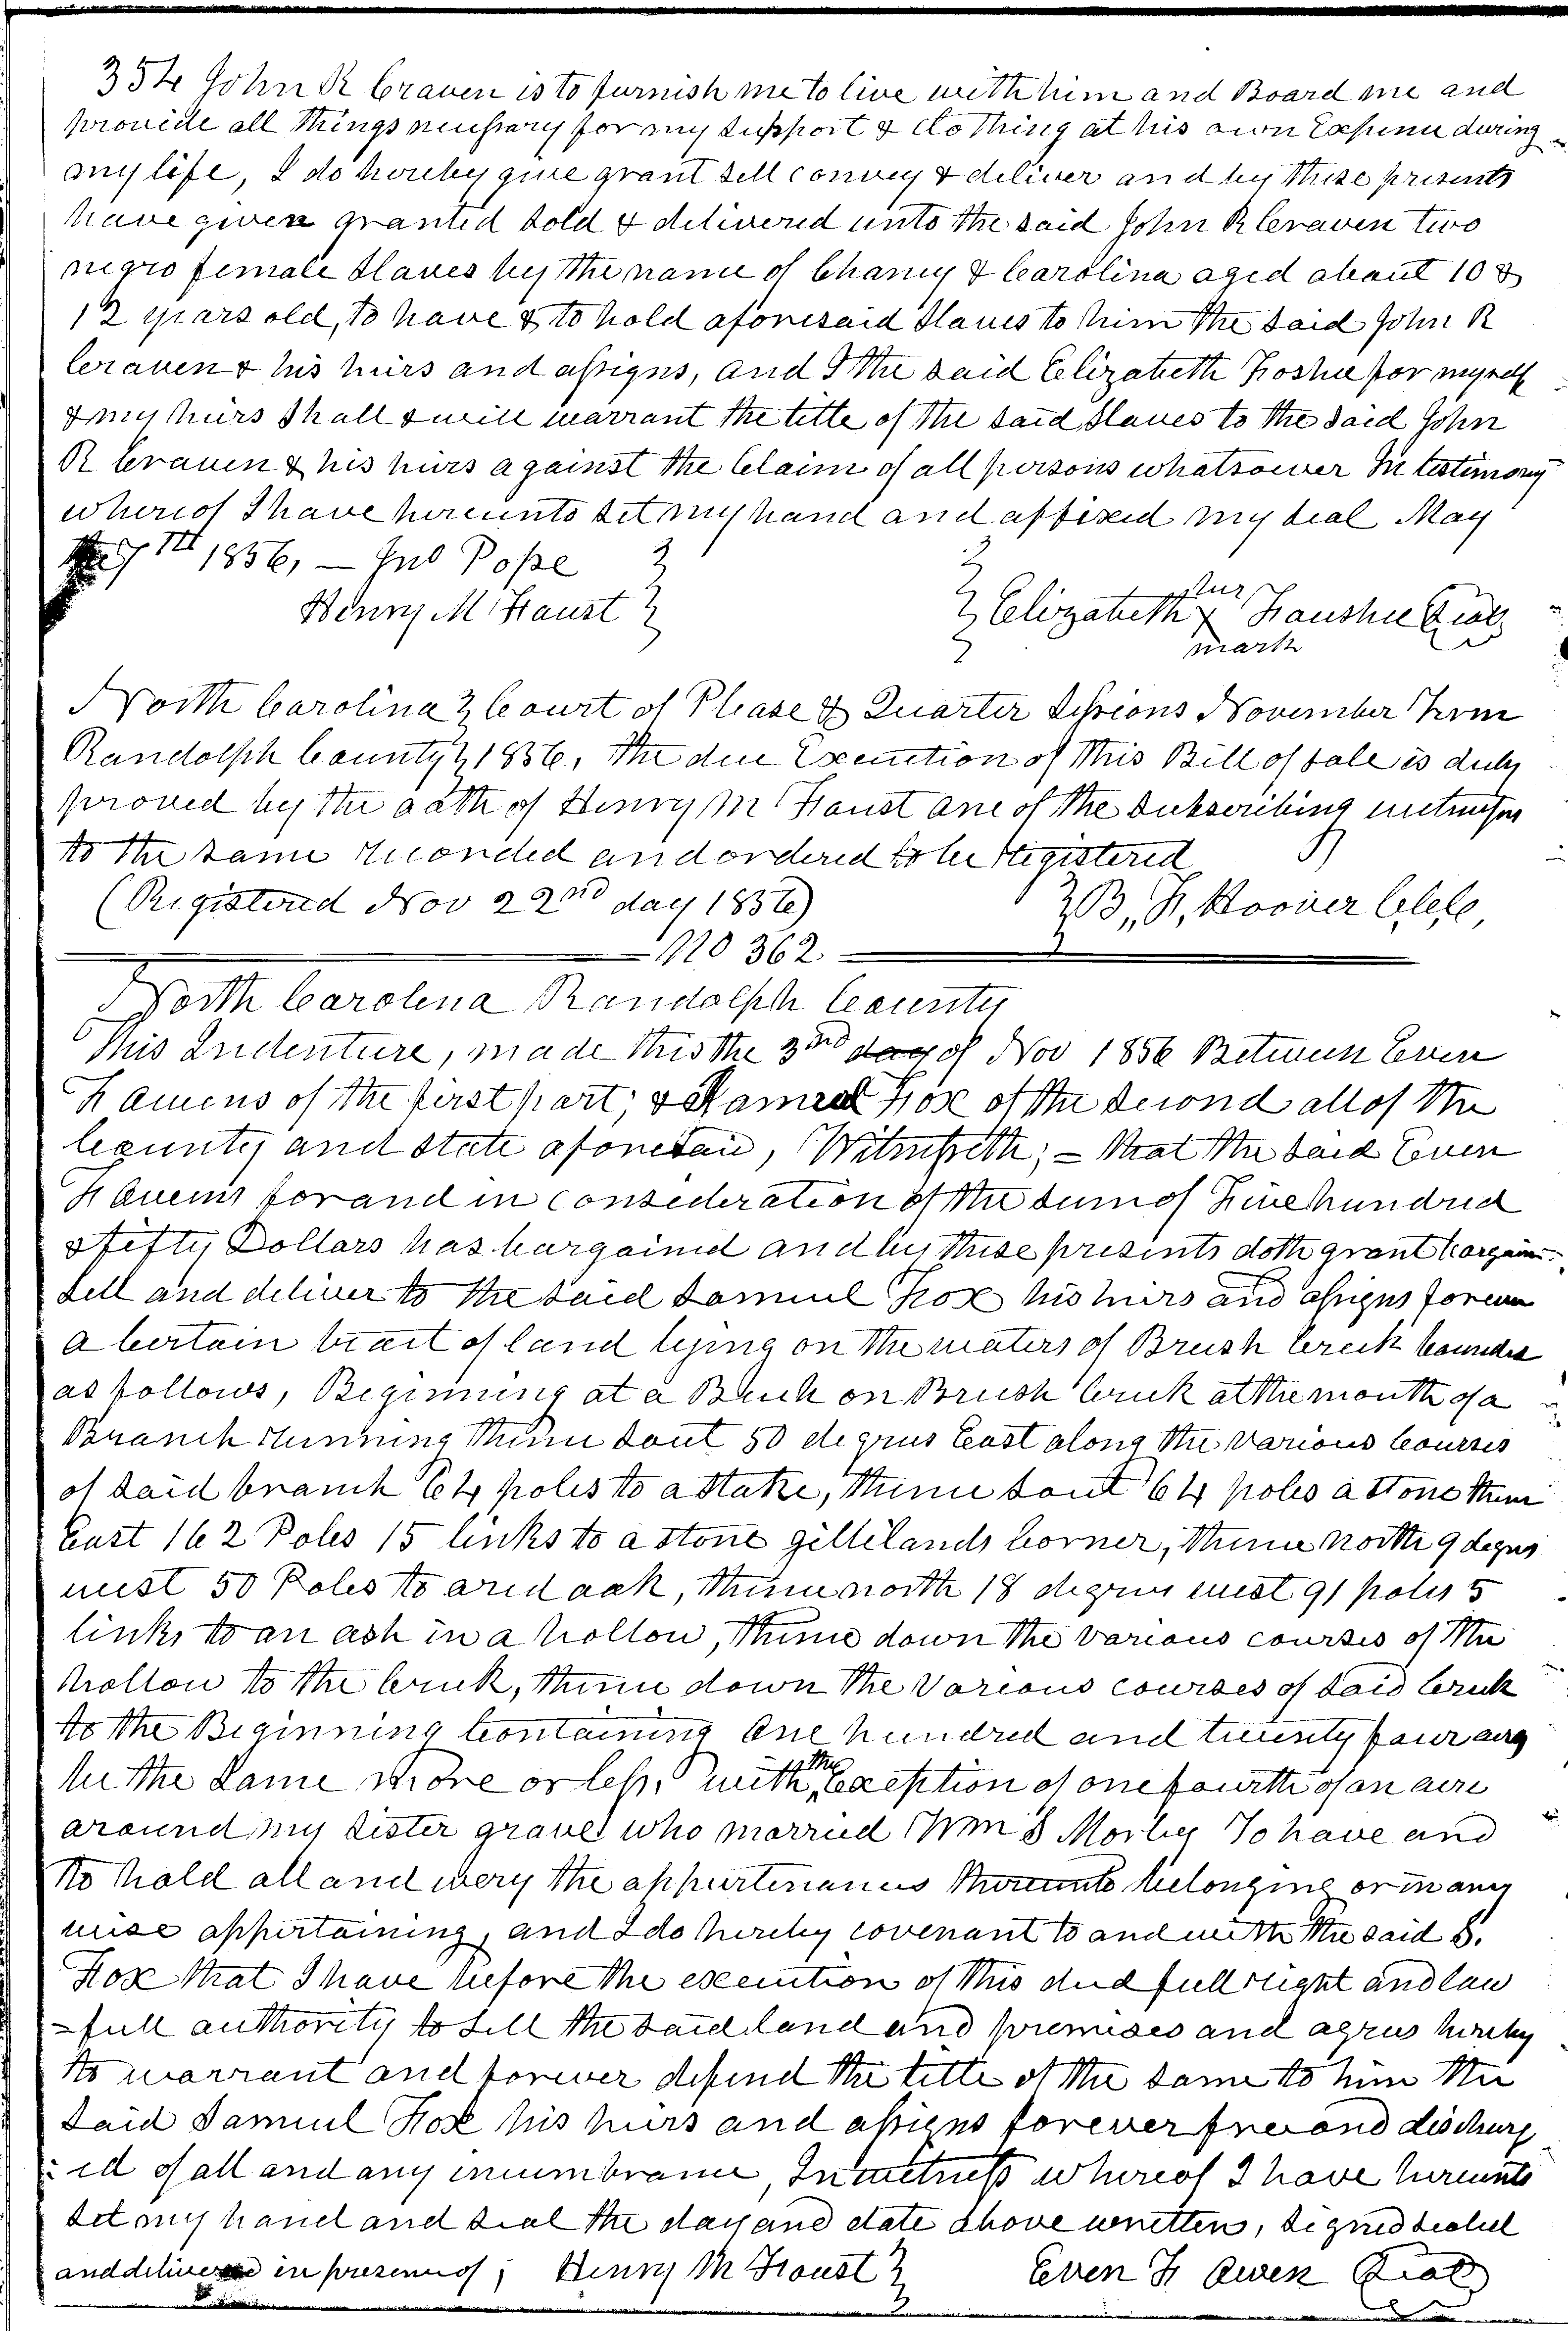 354 John R Craven is to furnish me to live with him and Board me and
provide all things necessary for my support & clothing at his own Expense during
my life, I do hereby give grant sell convey & deliver and by these presents
have given granted sold & delivered unto the said John R Craven two
negro female slaves by the name of Chaney & Carolina aged about 10 &
12 years old, to have & to hold aforesaid slaves to him the said John R
Craven & his heirs and assigns, and I the said Elizabeth Foshee for myself
& my heirs shall & will warrant the title of the said slaves to the said John
R Craven & his heirs against the Claim of all persons whatsoever In testimony
whereof I have hereunto set my hand and affixed my seal May
7th 1856, — Jno Pope
Henry M Faust
her
Elizabeth x Faushee Seal
mark
North Carolina Court of Please & Quarter Sessions November Term
Randolph County 1856, The due Execution of this Bill of sale is duly
proved by the oath of Henry M Faust one of the Subscribing witnesses
to the same recorded and ordered to be Registered
(Registered Nov 22nd day 1856) B, F, Hoover C,C,C,
No 362
North Carolina Randolph County
This Indenture, made this the 3rd day of Nov 1856 Between Even
of the first part; & Samuel Fox of the second all of the
County and state aforesaid, Witnesseth; – that the said Even
for and in consideration of the sum of Five hundred
& fifty Dollars has bargained and by these presents doth grant bargain
sell and deliver to the said Samuel Fox his heirs and assigns forever
a Certain tract of land lying on the waters of Brush Creek bounded
as follows, Beginning at a Beech on Brush Creek at the mouth of a
Branch Running thence sout 50 degrees East along the various Courses
of said branch 64 poles to a stake, thence sout 64 poles a stone thence
East 162 Poles 15 links to a stone gillilands Corner, thence north 9 degrees
west 50 Poles to a red oak, thence north 18 degrees west 91 poles 5
links to an ash in a hollow, thence down the various courses of the
hollow to the Creek, thence down the various courses of said Creek
to the Beginning Containing One hundred and twenty four acres
be the same more or less, with the Exception of one fourth of an acre
around my sister grave who married Wm S Mosley To have and
to hold all and every the appurtenances thereunto belonging or in any
wise appertaining, and I do hereby covenant to and with the said S.
Fox that I have before the execution of this deed full right and law
=full authority to sell the said land and premises and agrees hereby
to warrant and forever defend the title of the same to him the
said Samuel Fox his heirs and assigns forever free and discharg
=ed of all and any incumbrance, In witness whereof I have hereunto
set my hand and seal the day and date above written, Signed sealed
and delivered in presence of; Henry M Foust Even H Owen Seal